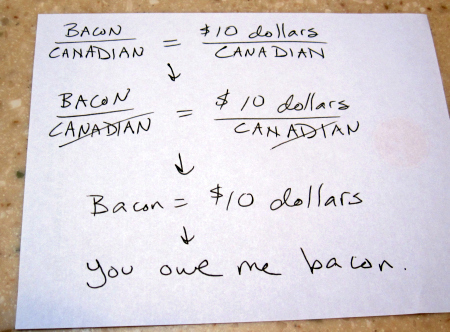 BACON / CANADIAN = $10 dollars / CANADIAN
↓
BACON / CANADIAN = $10 dollars / CANADIAN
↓
Bacon = $10 dollars
↓
you owe me bacon.